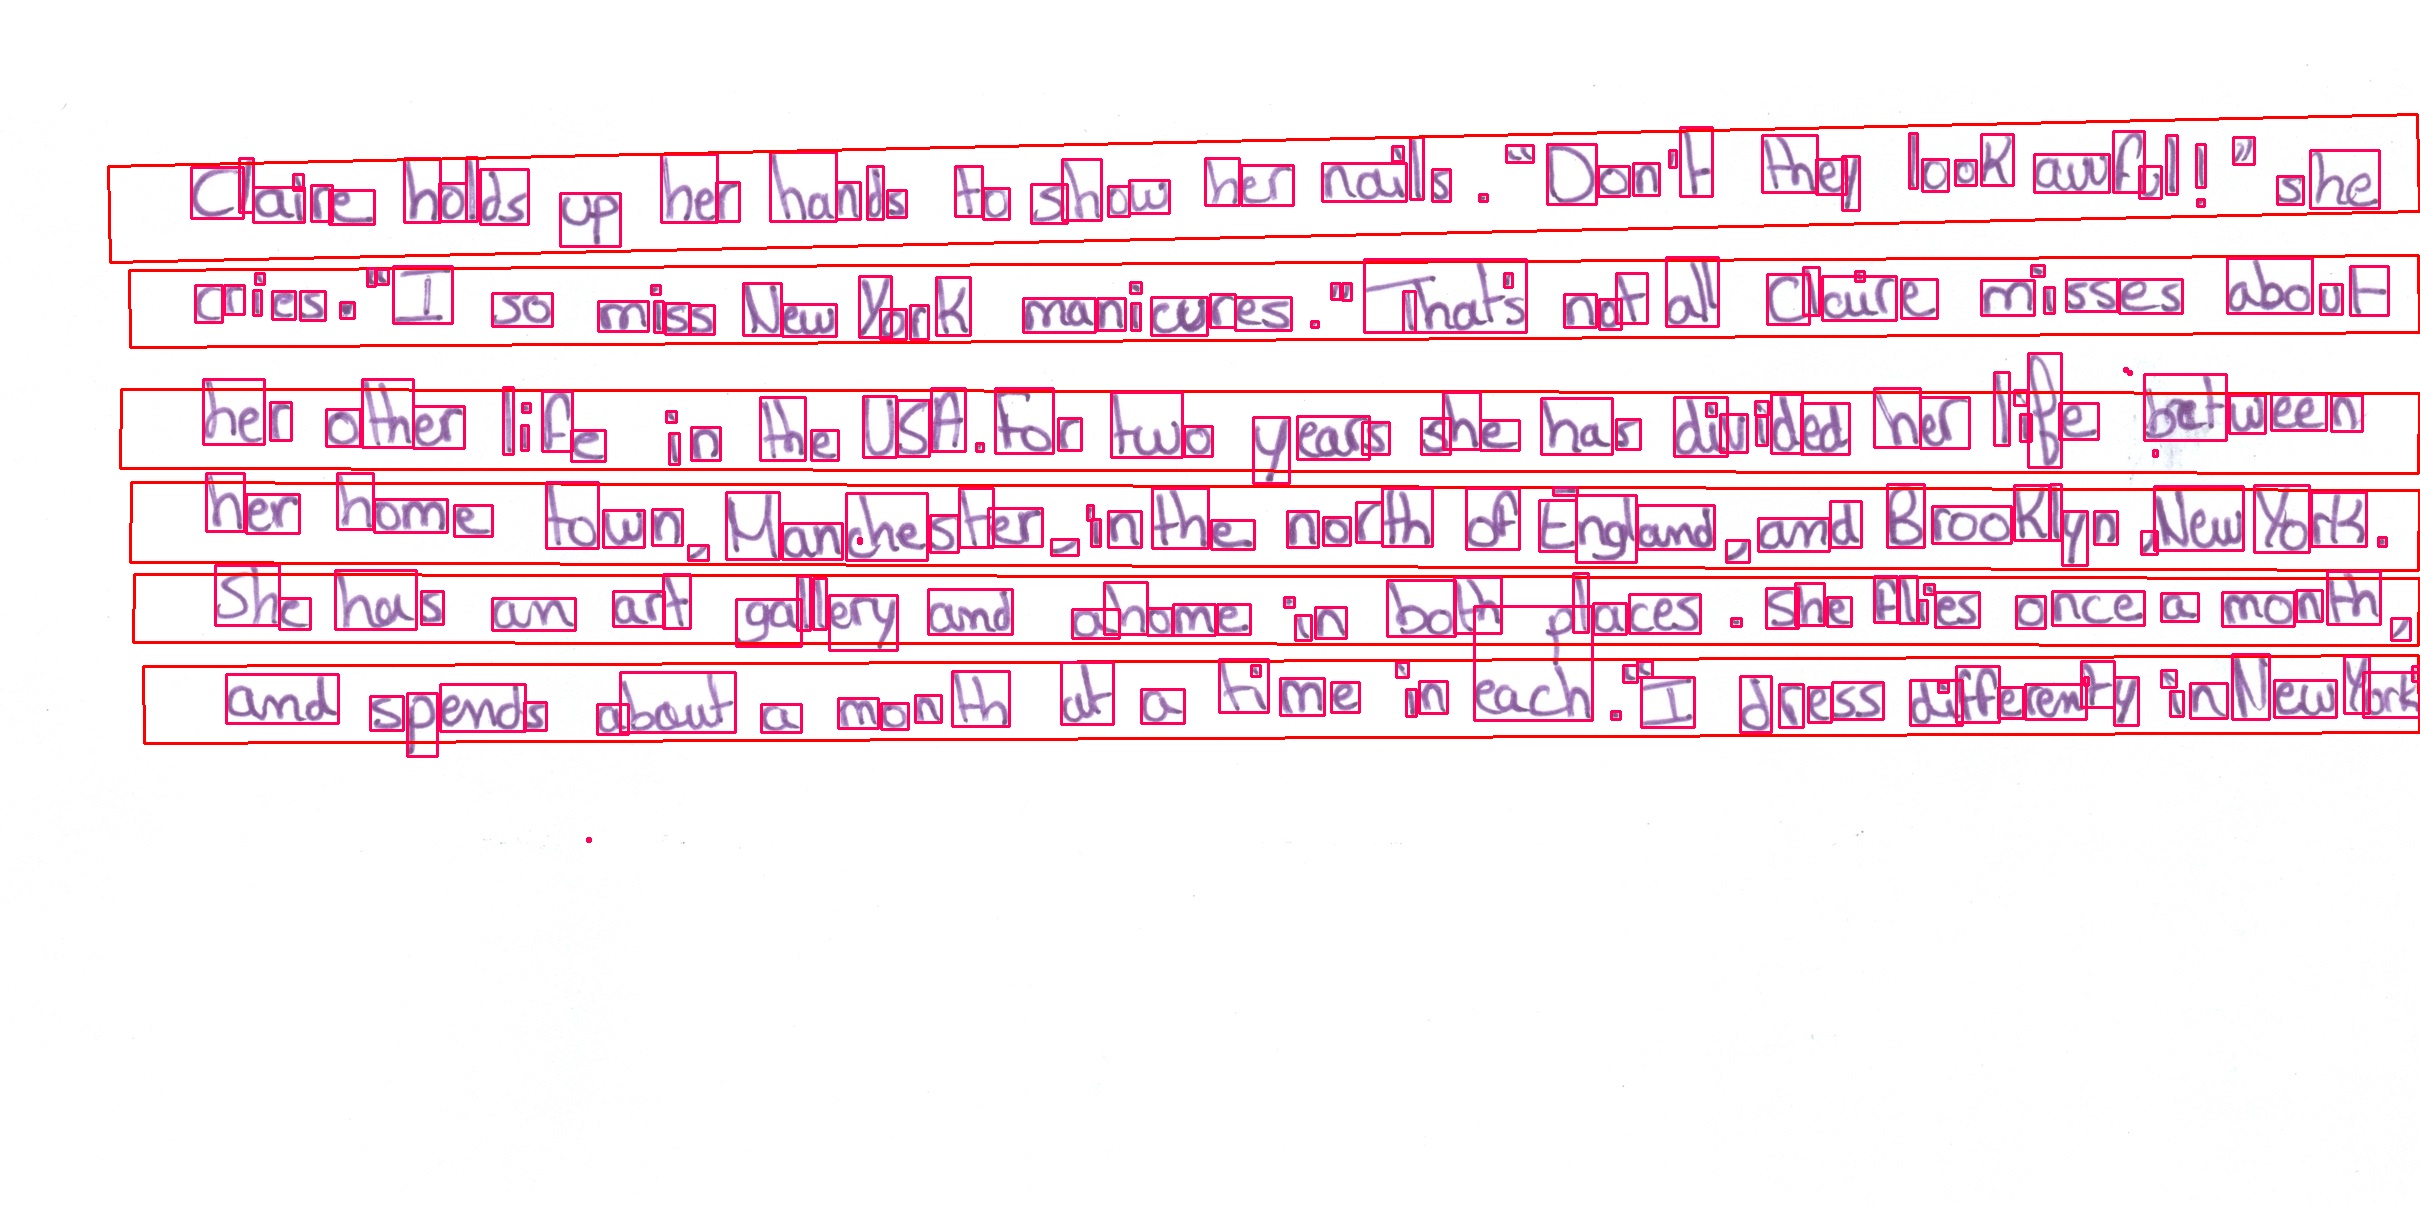 Claire holds up her hands to show her nails. "Don't they look awful!" she
cries. "I so miss New York manicures." That's not all Claire misses about
her other life in the USA. For two years she has divided her life between
her home town, Manchester, in the north of England, and Brooklyn, New York.
She has an art gallery and a home in both places. She flies once a month,
and spends about a month at a time in each. "I dress differenty in New York